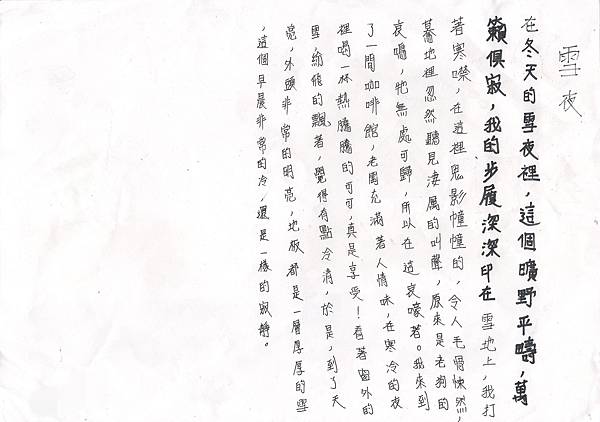 雪夜
在冬天的雪夜裡，這個曠野平疇，萬
籟俱寂，我的步履深深印在雪地上，我打
著寒噤，在這裡鬼影幢幢的，令人毛骨悚然，
驀地裡忽然聽見淒厲的叫聲，原來是老狗的
哀鳴，牠無處可歸，所以在這哀嚎著。我來到
了一間咖啡館，老闆充滿著人情味，在寒冷的夜
裡喝一杯熱騰騰的可可，真是享受！看著窗外的
雪，紛飛的飄著，覺得有點冷清，於是，到了天
亮，外頭非常的明亮，地板都是一層厚厚的雪
，這個早晨非常的冷，還是一樣的寂靜。